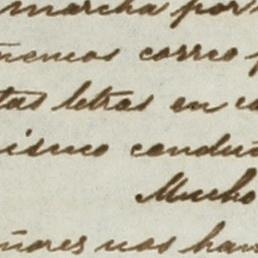 marcha por
ñemos correo p
tas letras en co
ismo conduc
Mucho
ñores nos han